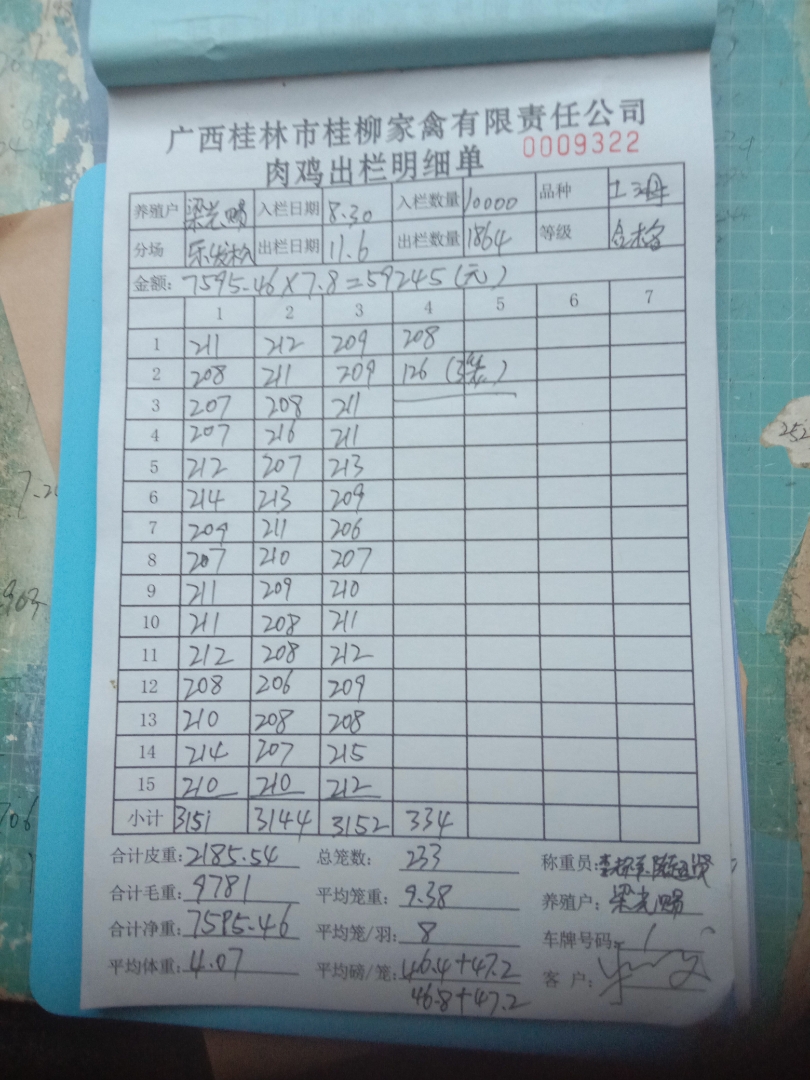 广西桂林市桂柳家禽有限责任公司
肉鸡出栏明细单 0009322
养殖户 梁光赐 入栏日期 8.30 入栏数量 10000 品种 土3母
分场 乐发松 出栏日期 11.6 出栏数量 1864 等级 合格
金额: 7595.46×7.8=59245(元)
1 2 3 4 5 6 7
1 211 212 209 208
2 208 211 209 126 (3笼)
3 207 208 211
4 207 216 211
5 212 207 213
6 214 213 209
7 209 211 206
8 207 210 207
9 211 209 210
10 211 208 211
11 212 208 212
12 208 206 209
13 210 208 208
14 214 207 215
15 210 210 212
小计 3151 3144 3152 334
合计皮重: 2185.54 总笼数: 233 称重员:
合计毛重: 9781 平均笼重: 9.38 养殖户: 梁光赐
合计净重: 7595.46 平均笼/羽: 8 车牌号码: 1
平均体重: 4.07 平均磅/笼: 46.4+47.2 客户:
46.8+47.2